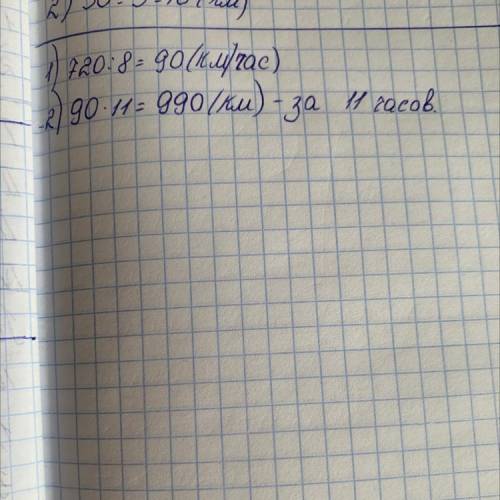 1) 720:8 = 90 (км/час)
2) 90 · 11 = 990 (км) - за 11 часов.